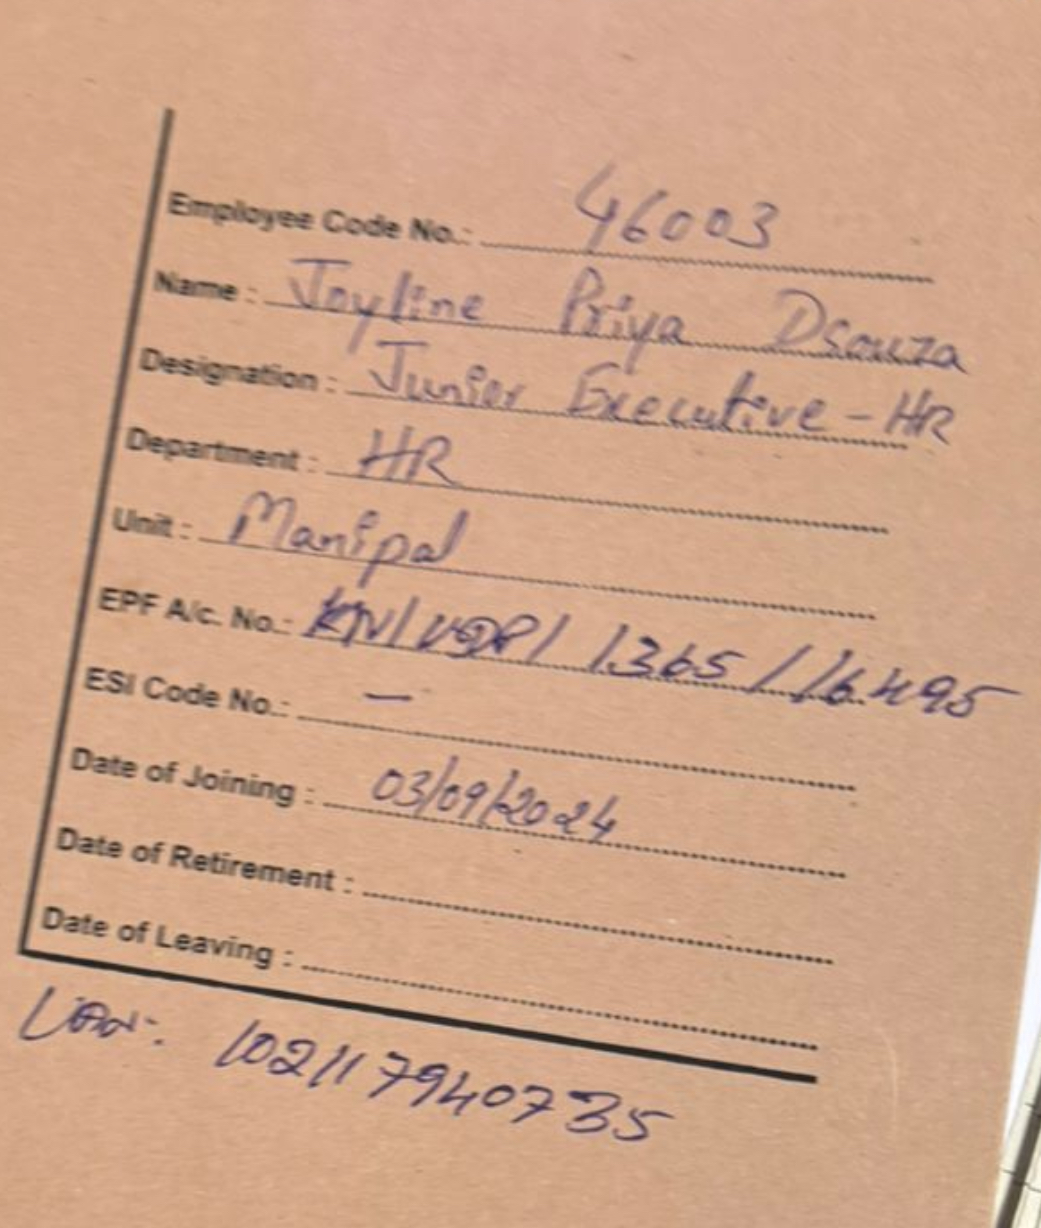 Employee Code No.: 46003
Name: Joyline Priya Dsouza
Designation: Junior Executive - HR
Department: HR
Unit: Manipal
EPF A/c. No.: KN/UDP/1365/16495
ESI Code No.: –
Date of Joining: 03/09/2024
Date of Retirement:
Date of Leaving:
UAN: 102117940735